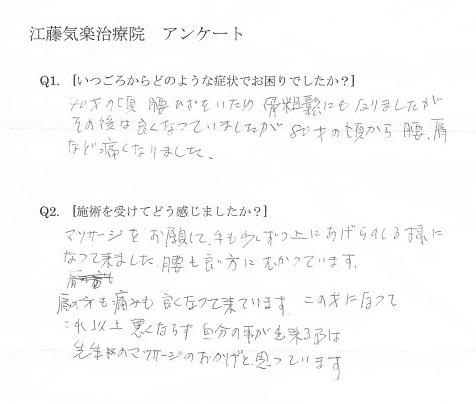 江藤気楽治療院 アンケート
Q1. [いつごろからどのような症状でお困りでしたか?]
40才の頃 腰 ひざをいため 骨粗鬆にも なりましたが
その後は良くなっていましたが 80才の頃から 腰、肩
など痛くなりました。
Q2. [施術を受けてどう感じましたか?]
マッサージを お願して、手も少しずつ上にあげられる様に
なって来ました、腰も良い方に むかっています。
肩の方も痛みも 良くなって来ています、この才になって
これ以上 悪くならず 自分の事が出来るのは
先生の マッサージのおかげと 思っています